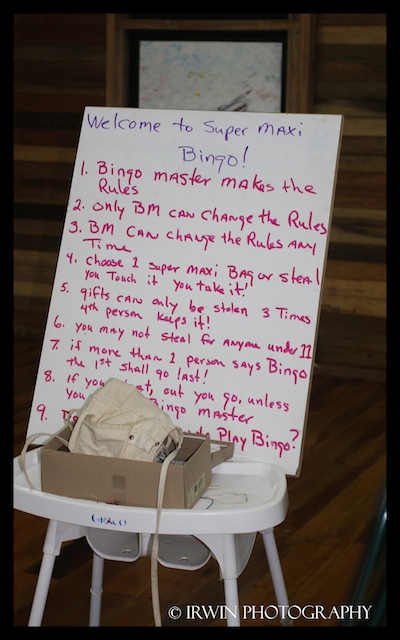 Welcome to Super Maxi
Bingo!
1. Bingo master makes the
Rules
2. Only BM can change the Rules
3. BM can change the Rules any
Time
4. choose 1 super maxi Bag or steal
you Touch it you take it!
5. gifts can only be stolen 3 Times
4th person keeps it!
6. you may not steal for anyone under 11
7. if more than 1 person says Bingo
the 1st shall go last!
8. if you at, out you go, unless
you Bingo master
9. Play Bingo?
GRACO
© IRWIN PHOTOGRAPHY